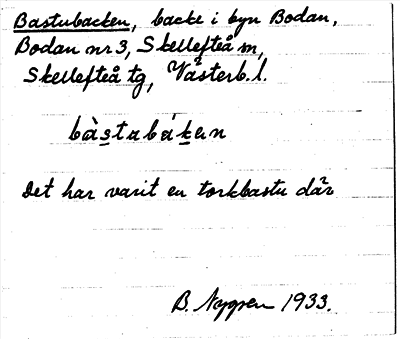 Bastubacken, backe i byn Bodan,
Bodan nr 3, Skellefteå m,
Skellefteå tg, Västerb. l.
bàstabákен
Det har varit en torkbastu där
B. Nygren 1933.